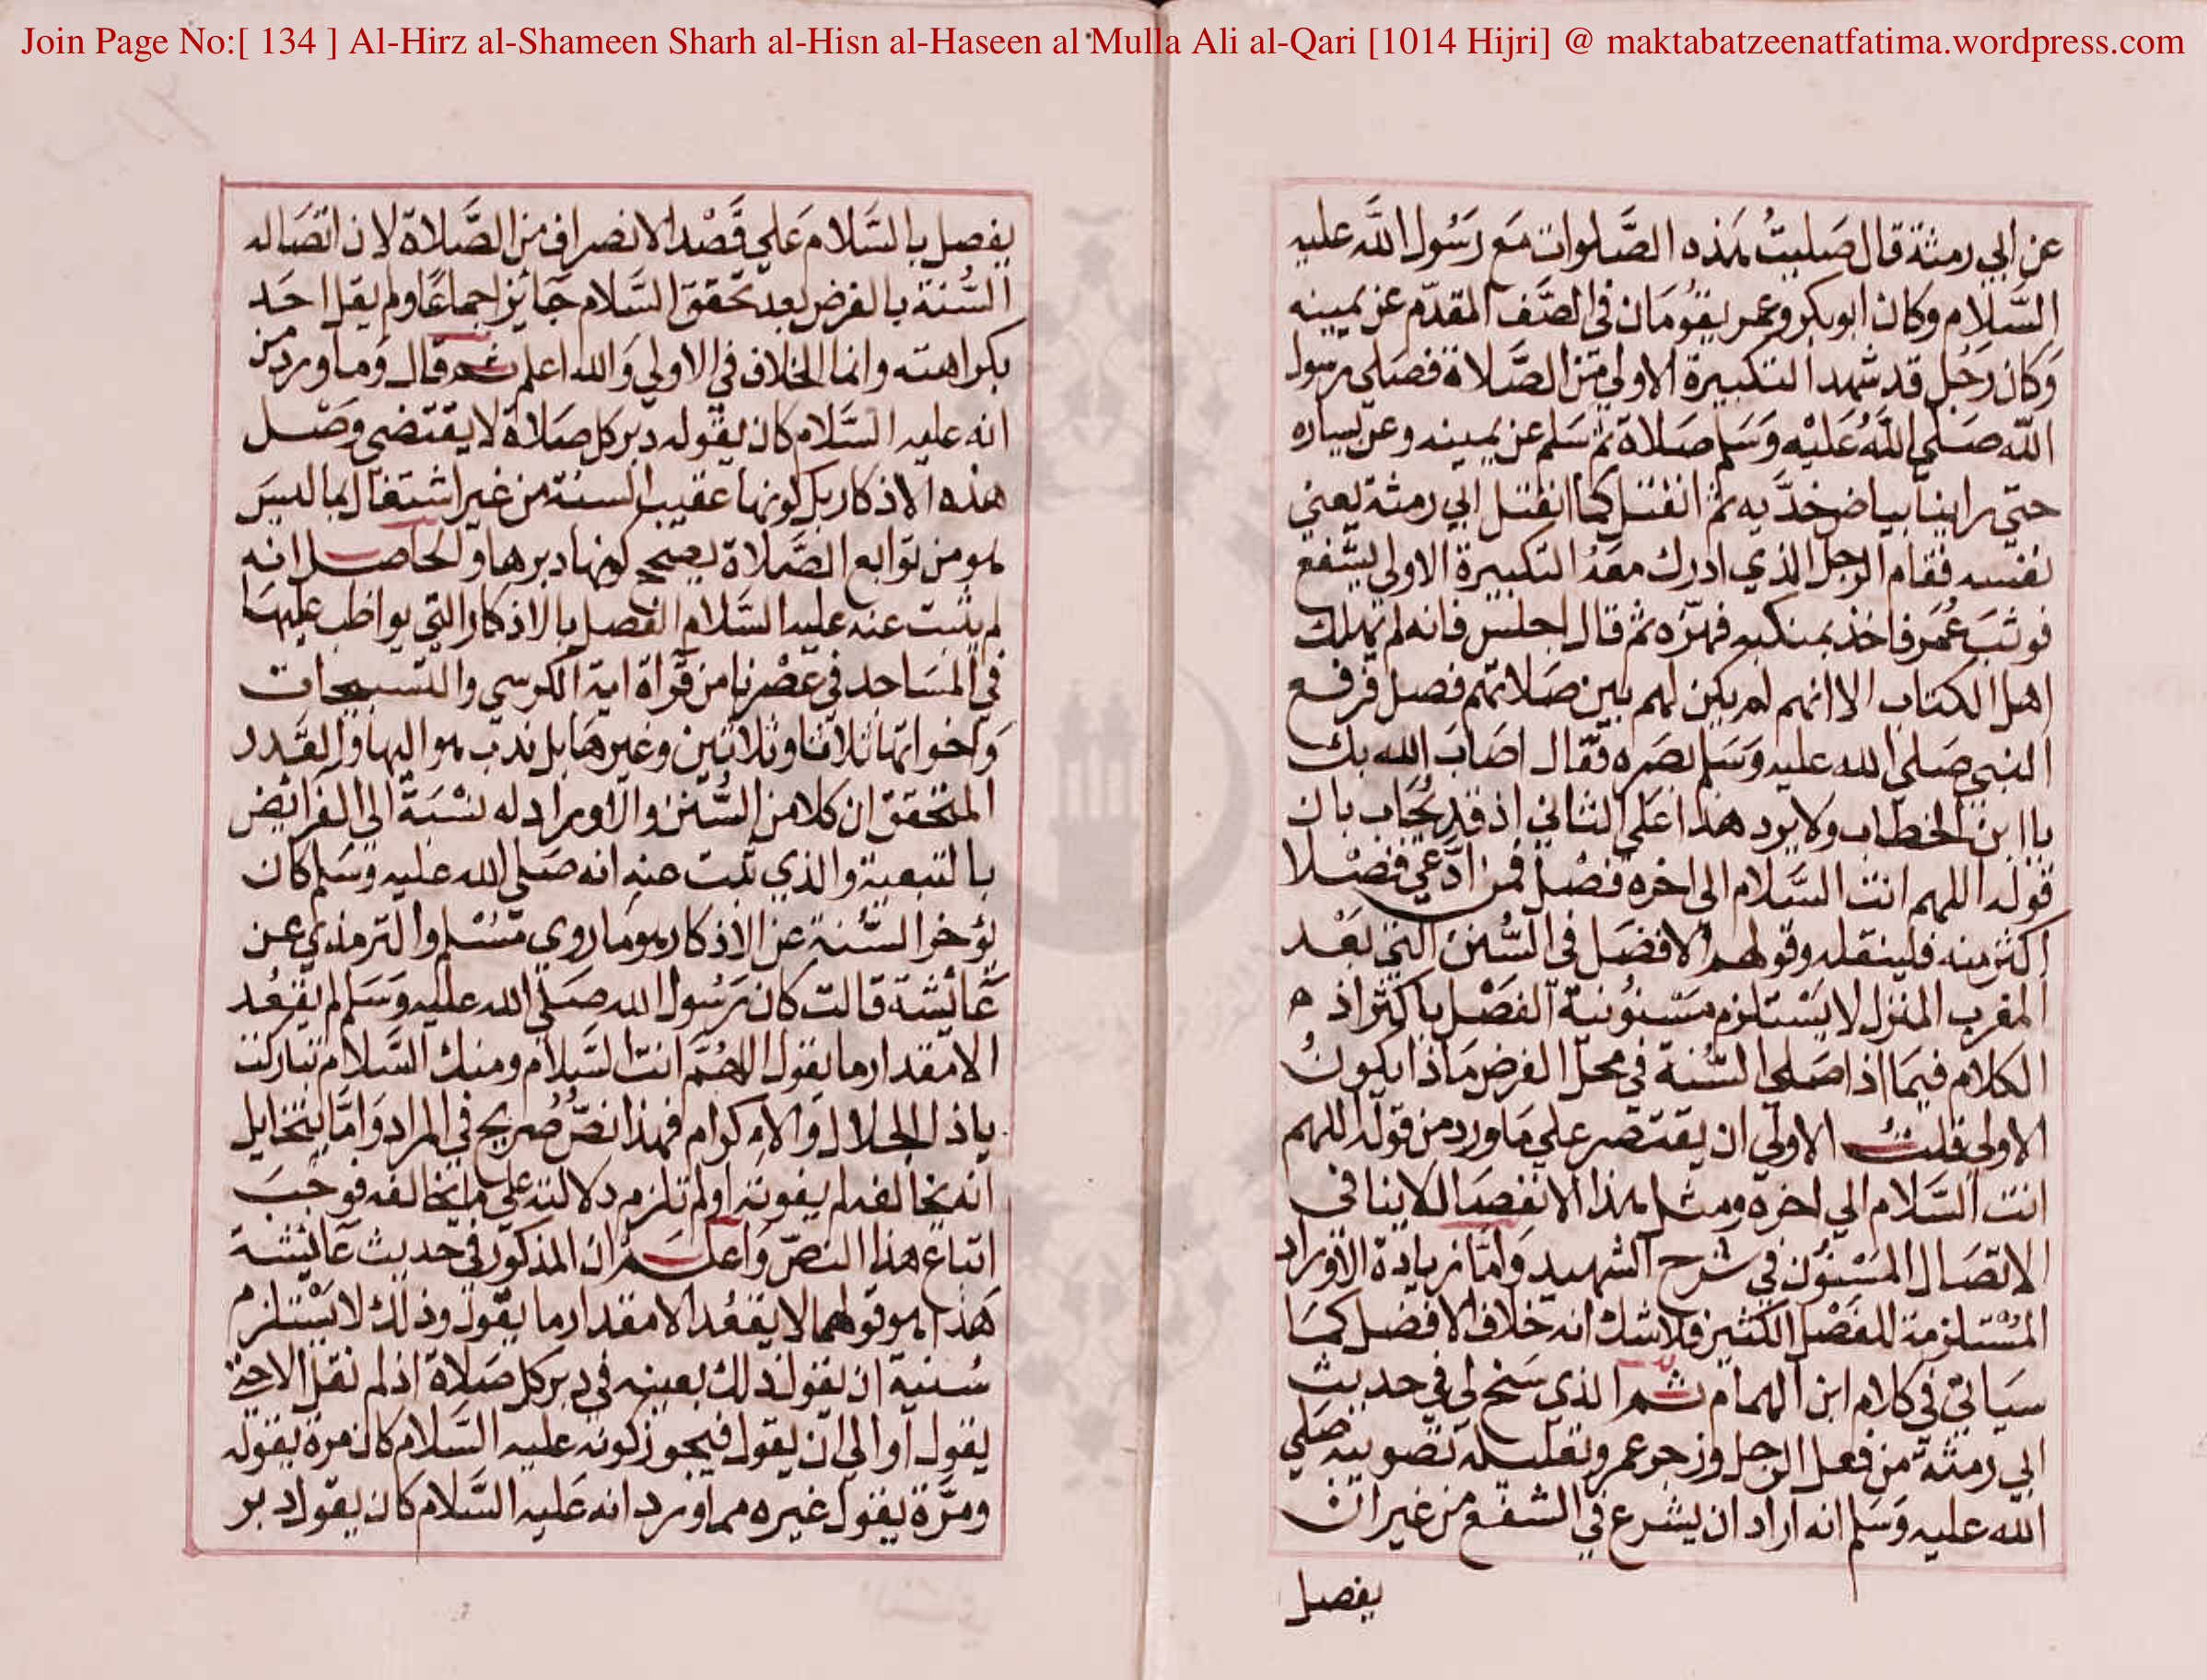 Join Page No:[ 134 ] Al-Hirz al-Shameen Sharh al-Hisn al-Haseen al Mulla Ali al-Qari [1014 Hijri] @ maktabatzeenatfatima.wordpress.com
عن ابي رمثة قال صليتُ هذه الصَّلوات مَع رَسُول اللَّه عليه
السَّلام وكان ابوبكر وعمر يقُومَان في الصَّف المقدّم عن يمينه
وَكان رَجُل قد شهد التكبيرة الاولي مِن الصَّلاة فصَلي رسول
اللّه صَلي اللَّهُ عَليْه وَسَلم صَلاة ثم سَلم عن يمينه وعن يساره
حتي راينا بياض خدَّيه ثم انفتل كما انفتل ابي رمثة يعني
نفسه فقام الرجل الذي ادرك معَهُ التكبيرة الاولي ليَشفع
فوثبَ عُمَر فاخذ بمنكبه فهزّه ثم قال اجلس فانه لم يهلك
اهل الكتاب الا انهم لم يكن لهم بين صَلاتهم فصل فرفع
النبي صَلي الله عليه وَسَلم بصَره فقال اصَابَ الله بك
يا ابن الخطاب ولا يرد هذا علَي الثاني اذ قد يُجَاب بان
قوله اللهم انت السَّلام الي اخره فصْل فمن ادَّعي فصْلا
اكثر منه فلينقله وقولهم الافضَل في السُّنن التي بَعْد
المغرب المنزل لا يسْتلزم مسْنُونية الفصْل باكثر اذ ه
الكلام فيمَا اذا صَلي السُّنة في محل الفرض مَاذا يكونُ
الاولي قلتُ الاولي ان يقتصَر علي مَا ورد من قوله اللهم
انت السَّلام الي اخره ومثل هذا الانفصَال لا ينافي
الاتصَال المسْنُون في شرح الشهيد وَامَّا زيادة الاوراد
المسْتلزمة للفصْل الكثير فلا شك انه خلاف الافضل كمَا
سيَاتي في كلام ابن الهمام ثم الذي سَنح لي في حديث
ابي رمثة من فعل الرجل وزجر عمر وتعليله تصويبه صَلي
الله عليه وَسَلم انه اراد ان يشرع في الشفع من غير ان
يفصل
يفصل بالسَّلام عَلي قَصْد الانصراف من الصَّلاة لان اتصَاله
السُّنة بالفرض بعد تحقق السَّلام جَائز اجماعًا ولم يقل احَد
بكراهته وانما الخلاف في الاولي وَالله اعلم ثم قال وَما ورد من
انه عليه السَّلام كان يقوله دبر كل صَلاة لا يقتضي وَصْل
هذه الاذكار بل كونها عقيب السنة من غير اشتغال بما ليسَ
هو من توابع الصَّلاة يصحح كونها دبرها والحَاصل انه
لم يثبت عنه عليه السَّلام الفصل بالاذكار التي يواظب عليهَا
في المسَاجد في عَصْرنا من قراة اية الكرسي والتسبيحات
وَاخواتها ثلاثا وثلاثين وغيرهَا بل ندب هو اليها وَالقَدر
المتحقق ان كلا من السُّنن والاوراد له نسْبَة الي الفرائض
بالتبعية والذي ثبت عنه انه صَلي الله عليه وَسَلم كان
يؤخر السُّنة عن الاذكار هو ما روي مسْلم والترمذي عن
عَائشة قالت كان رَسُول الله صَلي الله عليه وَسَلم لم يقعُد
الا مقدار ما يقول اللهُمَّ انت السَّلام ومنك السَّلام تباركت
ياذا الجلال وَالاكرام فهذا نصّ صَريح في المراد وَامَّا يتخايل
انه يخالفه لم يقوته اولم تلزم دلالته علي مايخالفه فوَجَبَ
اتباع هذا النصّ وَاعلم ان المذكور في حديث عَائشة
هَذا هو قولهما لا يقعُد الا مقدار ما يقول وذلك لا يسْتلزم
سُنية ان يقول ذلك بعينه في دبر كل صَلاة اذ لم تقل الا حتي
يقول او الي ان يقول فيجوز كونه عليه السَّلام كان مَرة يقوله
ومَرَّة يقول غيره مما ورد انه عَليه السَّلام كان يقول دبر